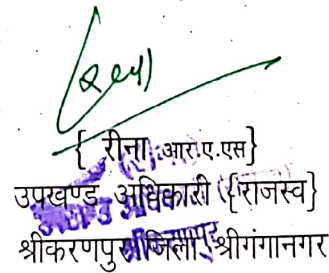 { रीना आर.ए.एस}
उपखण्ड अधिकारी {राजस्व}
श्रीकरणपुर जिला श्रीगंगानगर